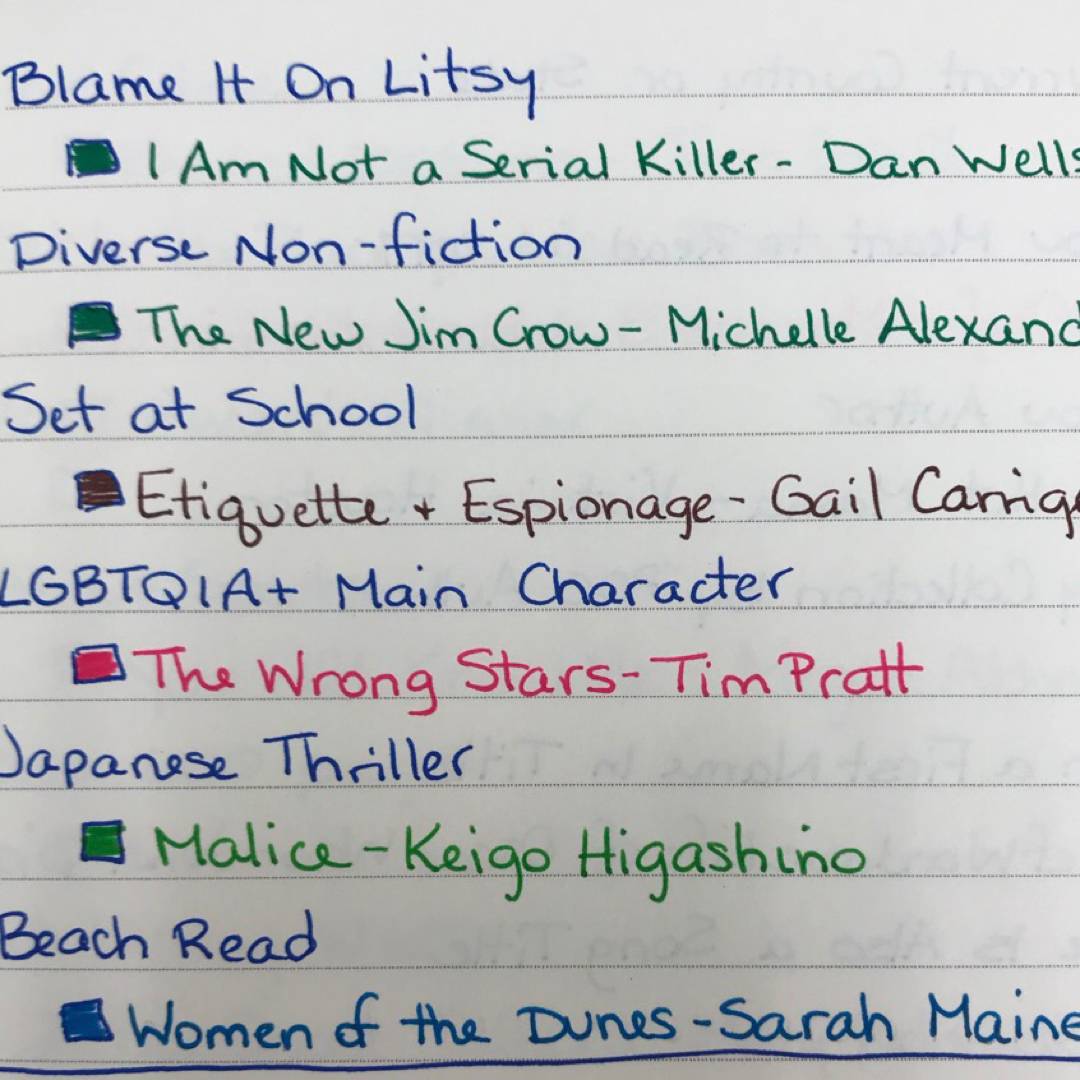 Blame It On Litsy
I Am Not a Serial Killer - Dan Wells
Diverse Non-fiction
The New Jim Crow - Michelle Alexand
Set at School
Etiquette + Espionage - Gail Carrige
LGBTQIA+ Main Character
The Wrong Stars - Tim Pratt
Japanese Thriller
Malice - Keigo Higashino
Beach Read
Women of the Dunes - Sarah Maine